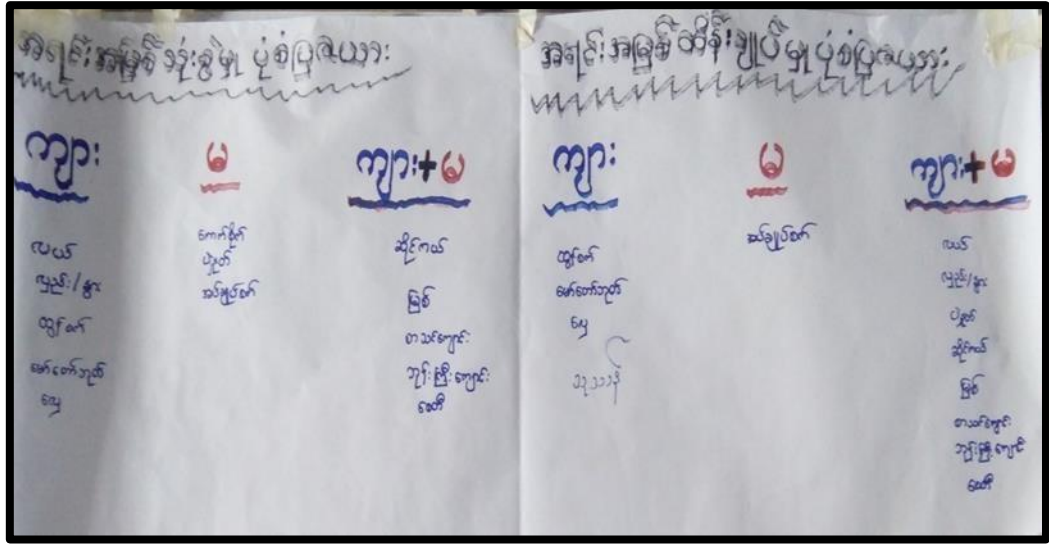 အရင်းအမြစ် သုံးစွဲမှု ပုံစံပြဇယား
ကျား
လယ်
လှည်း/နွား
ထွန်စက်
မော်တော်ဘုတ်
လှေ
မ
ကောက်စိုက်
ပဲနုတ်
အပ်ချုပ်စက်
ကျား+မ
ဆိုင်ကယ်
မြစ်
စာသင်ကျောင်း
ဘုန်းကြီးကျောင်း
စေတီ
အရင်းအမြစ် ထိန်းချုပ်မှု ပုံစံပြဇယား
ကျား
ထွန်စက်
မော်တော်ဘုတ်
လှေ
သုသာန်
မ
အပ်ချုပ်စက်
ကျား+မ
လယ်
လှည်း/နွား
ပဲနုတ်
ဆိုင်ကယ်
မြစ်
စာသင်ကျောင်း
ဘုန်းကြီးကျောင်း
စေတီ